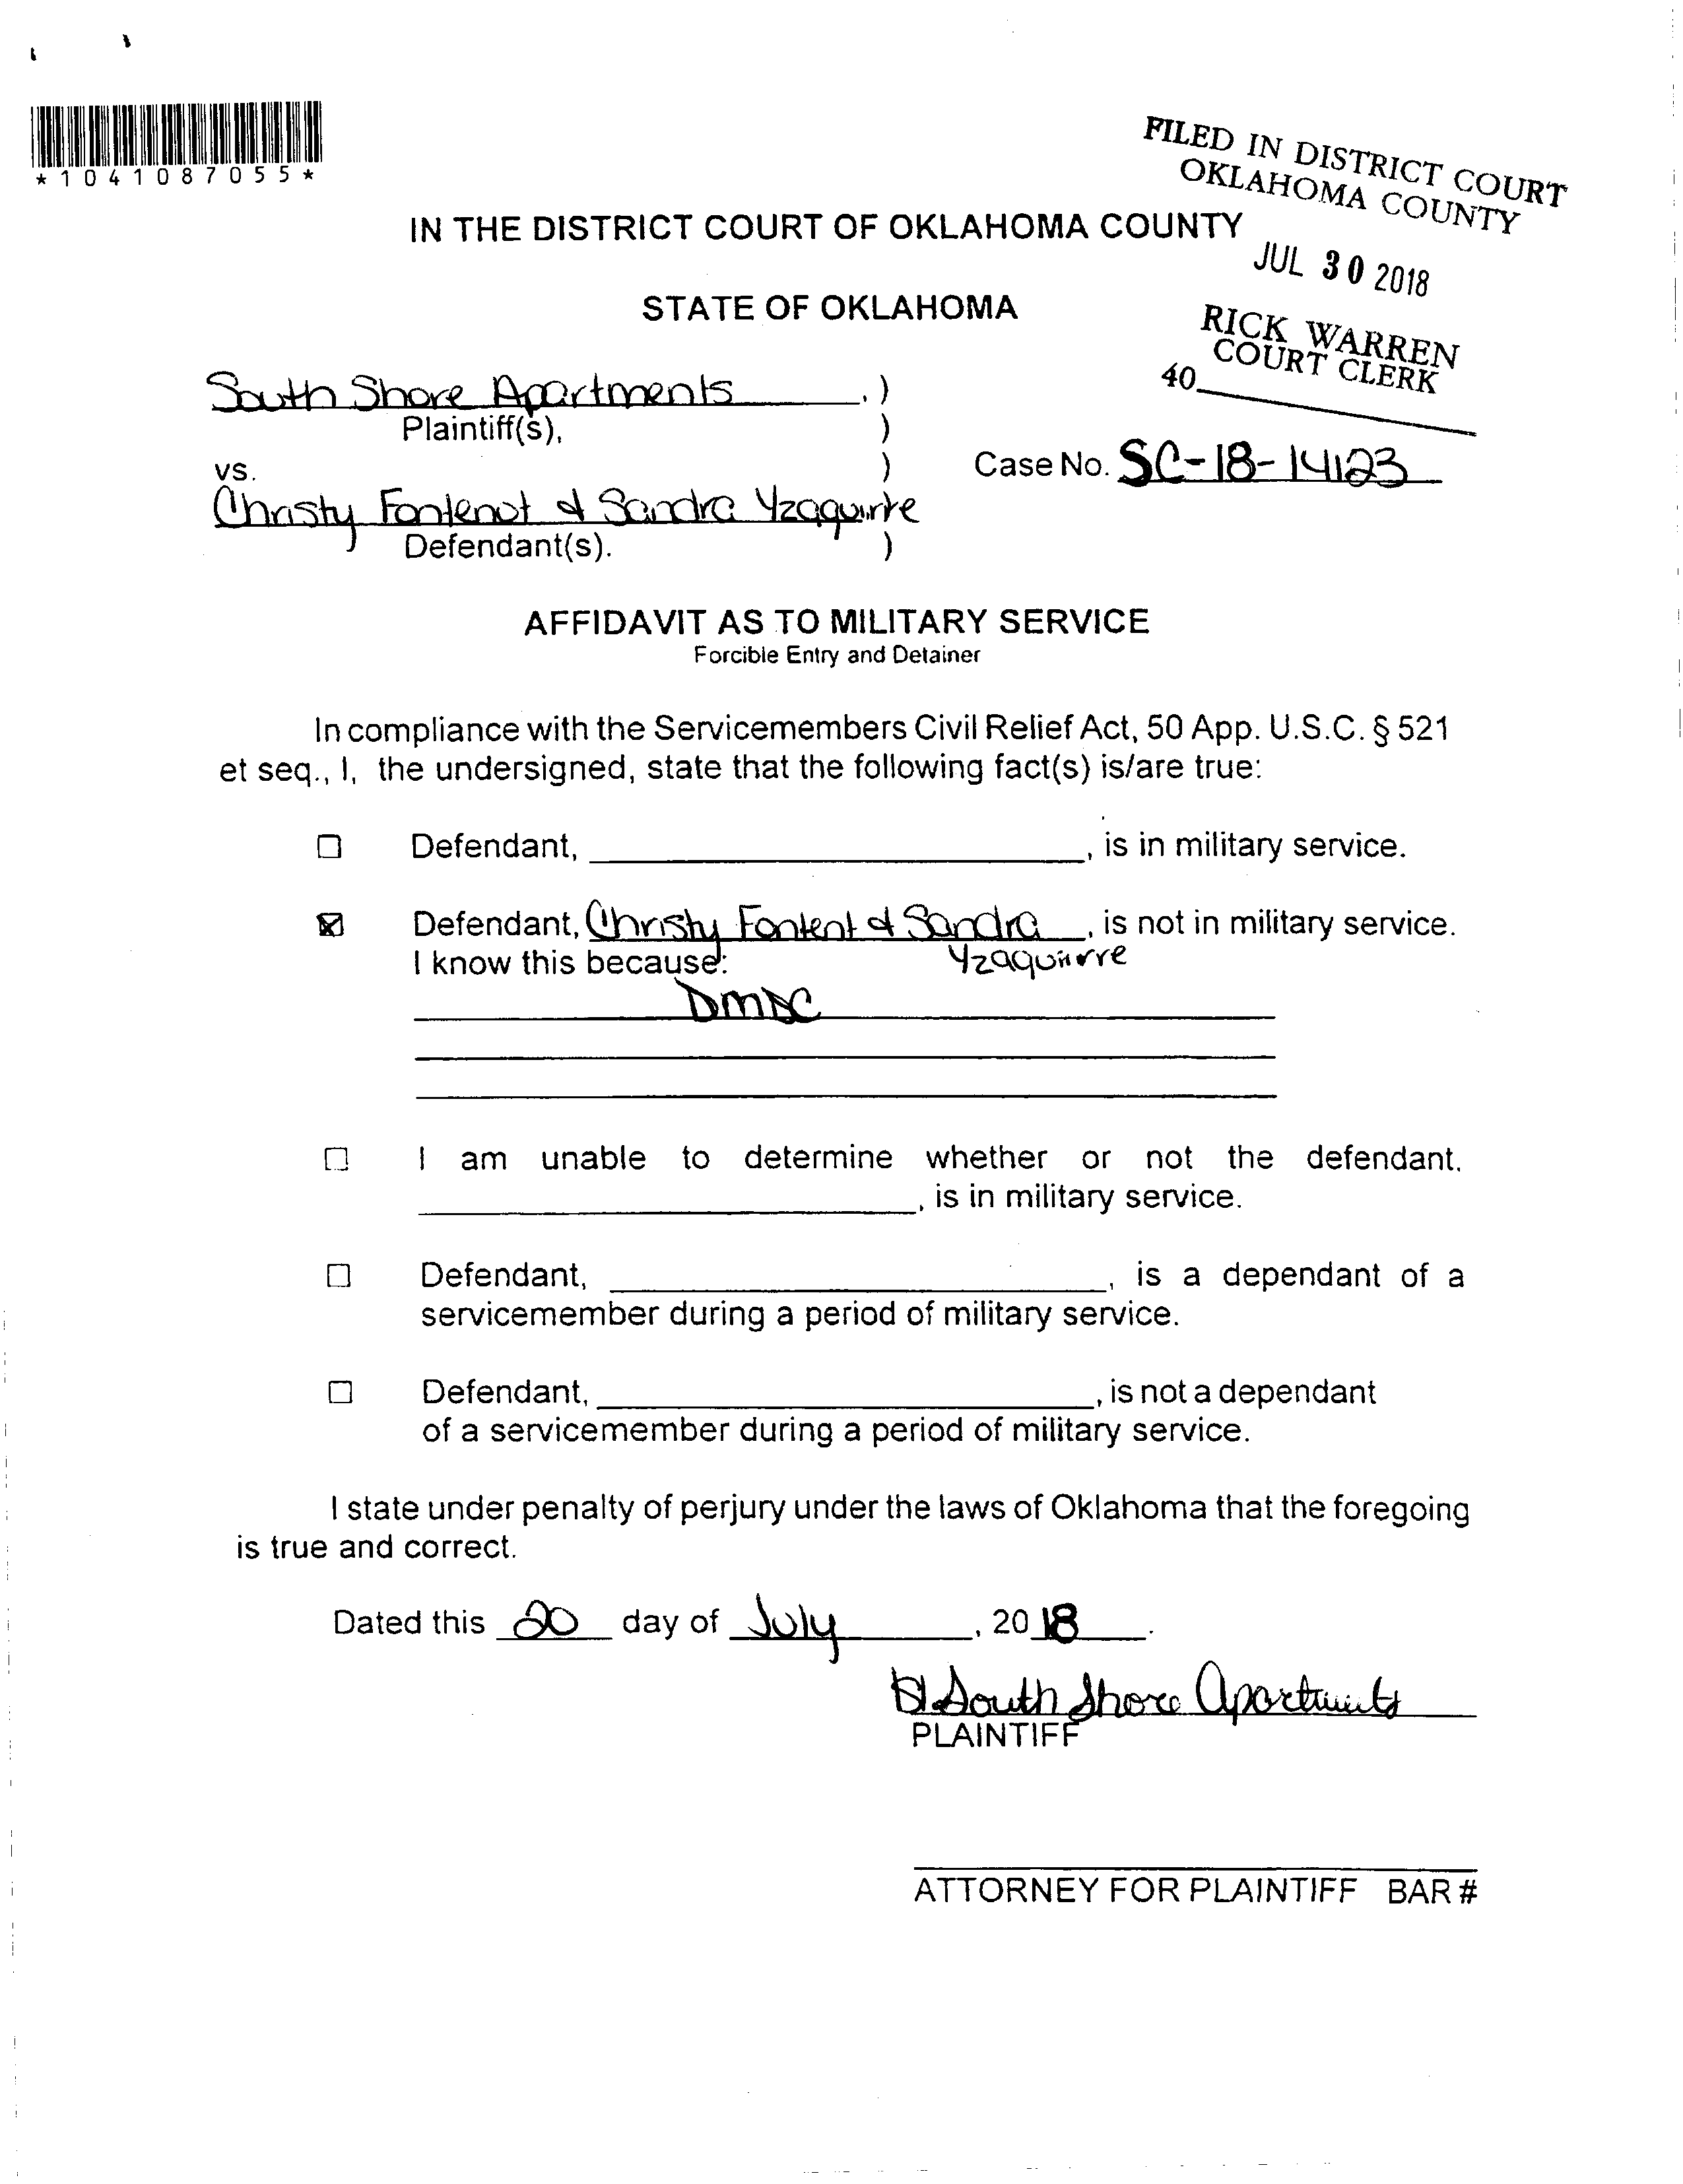 *1041087055*
FILED IN DISTRICT COURT
OKLAHOMA COUNTY
IN THE DISTRICT COURT OF OKLAHOMA COUNTY
JUL 30 2018
STATE OF OKLAHOMA
RICK WARREN
COURT CLERK
40
South Shore Apartments , )
Plaintiff(s), )
vs. )
Case No. SC-18-14123
Christy Fontenot & Sandra Yzaguirre
Defendant(s). )
AFFIDAVIT AS TO MILITARY SERVICE
Forcible Entry and Detainer
In compliance with the Servicemembers Civil Relief Act, 50 App. U.S.C. § 521
et seq., I, the undersigned, state that the following fact(s) is/are true:
☐ Defendant, , is in military service.
☒ Defendant, Christy Fontent & Sandra , is not in military service.
I know this because: Yzaguirre
DMDC
☐ I am unable to determine whether or not the defendant,
, is in military service.
☐ Defendant, , is a dependant of a
servicemember during a period of military service.
☐ Defendant, , is not a dependant
of a servicemember during a period of military service.
I state under penalty of perjury under the laws of Oklahoma that the foregoing
is true and correct.
Dated this 20 day of July , 20 18 .
South Shore Apartments
PLAINTIFF
ATTORNEY FOR PLAINTIFF BAR #